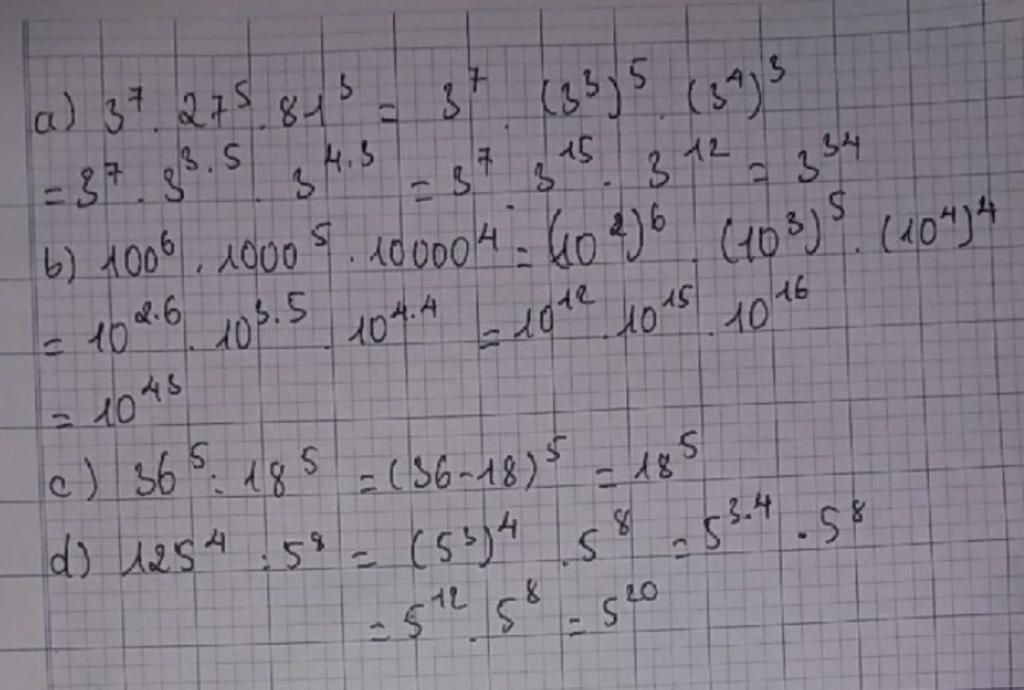 a) 3⁷ . 27⁵ . 81³ = 3⁷ . (3³)⁵ . (3⁴)³
= 3⁷ . 3³·⁵ . 3⁴·³ = 3⁷ . 3¹⁵ . 3¹² = 3³⁴
b) 100⁶ . 1000⁵ . 10000⁴ = (10²)⁶ . (10³)⁵ . (10⁴)⁴
= 10²·⁶ . 10³·⁵ . 10⁴·⁴ = 10¹² . 10¹⁵ . 10¹⁶
= 10⁴³
c) 36⁵ : 18⁵ = (36-18)⁵ = 18⁵
d) 125⁴ : 5⁸ = (5³)⁴ . 5⁸ = 5³·⁴ . 5⁸
= 5¹² . 5⁸ = 5²⁰